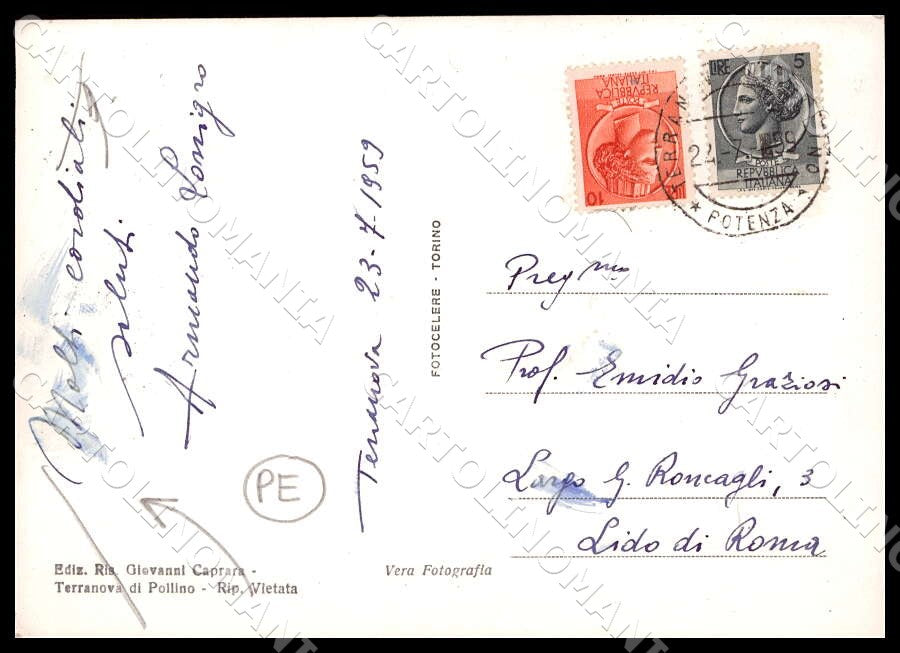 Molti cordiali
saluti
Armando Lonigro
Terranova 23-7-1959
PE
Ediz. Ris. Giovanni Caprara -
Terranova di Pollino - Rip. Vietata
Vera Fotografia
FOTOCELERE - TORINO
10
REPVBBLICA
ITALIANA
POSTE
LIRE 5
POSTE
REPVBBLICA
ITALIANA
POTENZA
Preg mo
Prof. Emidio Graziosi
Largo G. Roncagli, 3
Lido di Roma
CARTOLINOMANIA